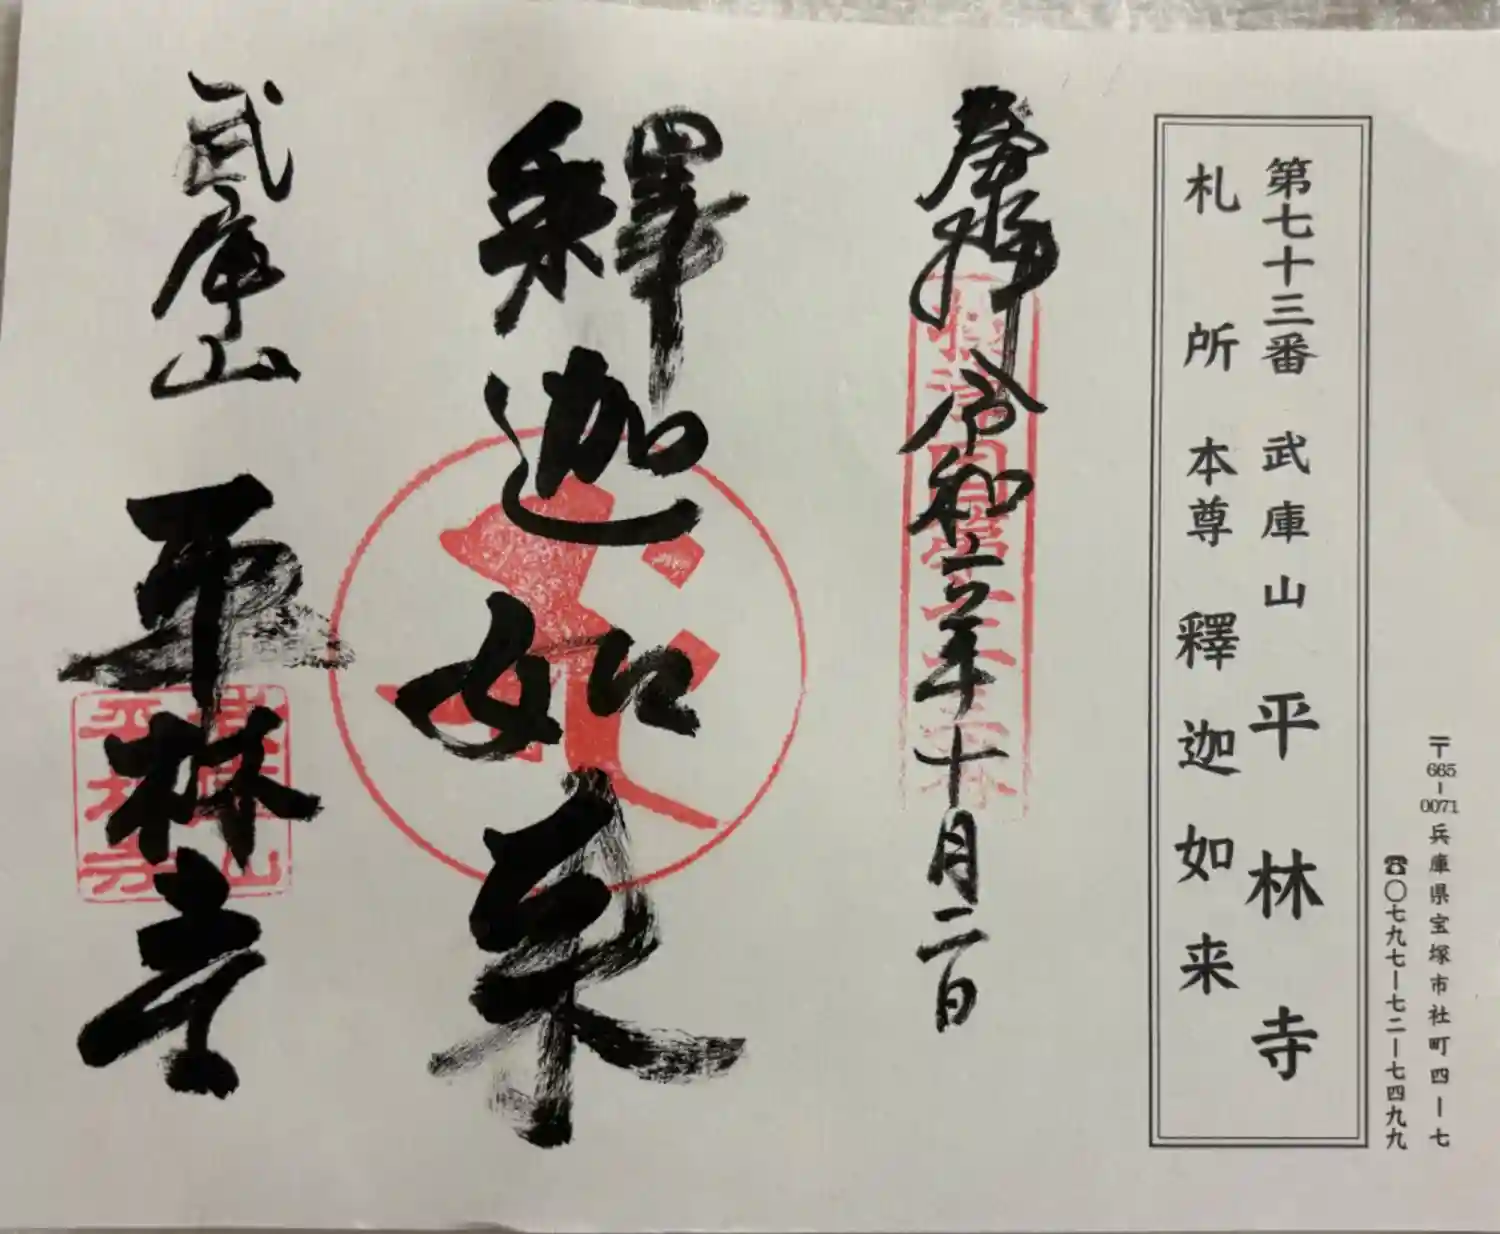 〒665-0071兵庫県宝塚市社町四ー七
☎〇七九七ー七二ー七四九九
第七十三番 武庫山 平林寺
札所 本尊 釋迦如来
奉拝 令和六年十月二日
釋迦如来
武庫山 平林寺
武庫山
平林寺